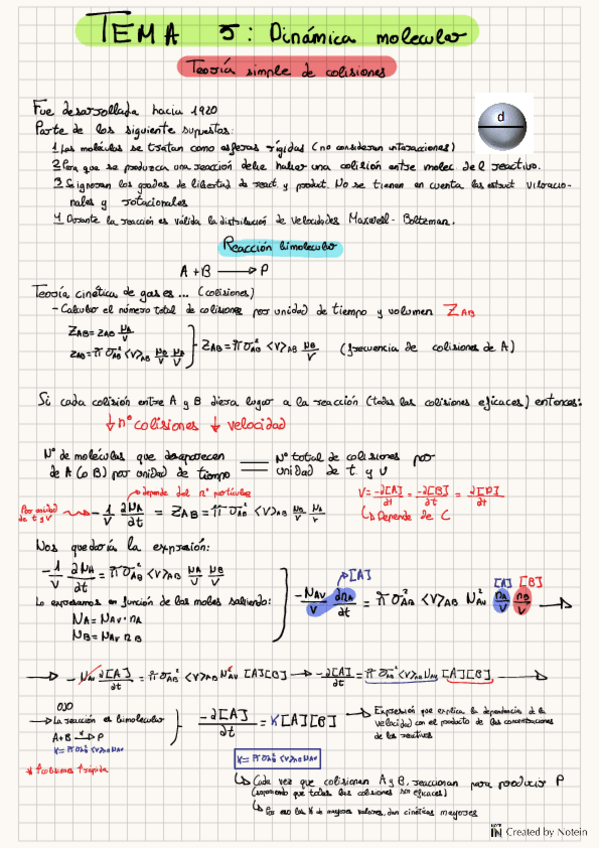 TEMA 5: Dinámica molecular
Teoría simple de colisiones
Fue desarrollada hacia 1920
Parte de los siguiente supuestos:
d
1 Las moléculas se tratan como esferas rígidas (no consideran interacciones)
2 Para que se produzca una reacción debe haber una colisión entre molec. del reactivo.
3 Se ignoran los grados de libertad de react. y product. No se tienen en cuenta las estruct vibracio-
nales y rotacionales
4 Durante la reacción es válida la distribución de velocidades Maxwell-Boltzman.
Reacción bimolecular
A + B → P
Teoría cinética de gases... (colisiones)
- Calcular el número total de colisiones por unidad de tiempo y volumen Z_AB
Z_AB = z_AB N_A/V
z_AB = π σ²_AB <v>_AB N_B/V N_A/V
Z_AB = π σ²_AB <v>_AB N_B/V (frecuencia de colisiones de A)
Si cada colisión entre A y B diera lugar a la reacción (todas las colisiones eficaces) entonces:
↓ nº colisiones ↓ velocidad
Nº de moléculas que desaparecen = Nº total de colisiones por
de A (o B) por unidad de tiempo unidad de t. y v
depende del nº partículas
Por unidad de t y V
-1/V ∂N_A/∂t = Z_AB = π σ²_AB <v>_AB N_B/V N_A/V
V = -∂[A]/∂t = -∂[B]/∂t = ∂[P]/∂t
↳ Depende de C
Nos quedaría la expresión:
-1/V ∂N_A/∂t = π σ²_AB <v>_AB N_A/V N_B/V
Lo expresamos en función de las moles sabiendo:
N_A = N_AV · n_A
N_B = N_AV n_B
[A]
-N_AV/V ∂n_A/∂t = π σ²_AB <v>_AB N²_AV n_A/V n_B/V →
[A] [B]
→ -N_AV ∂[A]/∂t = π σ²_AB <v>_AB N²_AV [A][B] → -∂[A]/∂t = π σ²_AB <v>_AB N_AV [A][B] →
OJO
→ La reacción es bimolecular
A + B → P
K = π σ²_AB <v>_AB N_AV
-∂[A]/∂t = K[A][B]
→ Expresión que explica la dependencia de la
velocidad con el producto de las concentraciones
de los reactivos
K = π σ²_AB <v>_AB N_AV
↳ Cada vez que colisionan A y B, reaccionan para producir P
(suponiendo que todas las colisiones son eficaces)
↳ Por eso las K de mayores valores dan cinéticas mayores
Created by Notein